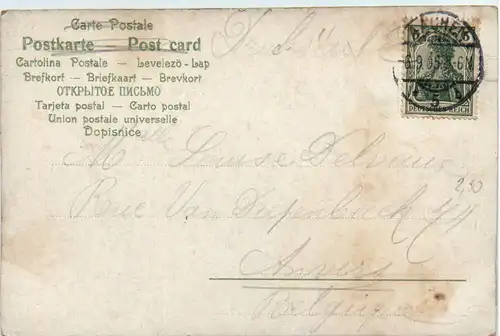 Carte Postale
Postkarte — Post card
Cartolina Postale — Levelező-Lap
Brefkort — Briefkaart — Brevkort
ОТКРЫТОЕ ПИСЬМО
Tarjeta postal — Carto postal
Union postale universelle
Dopisnice
AACHEN
-6.9.05.5-6N
DEUTSCHES REICH
Louise
2,50
Rue Van Diepenbeeck 44
Anvers
Belgique